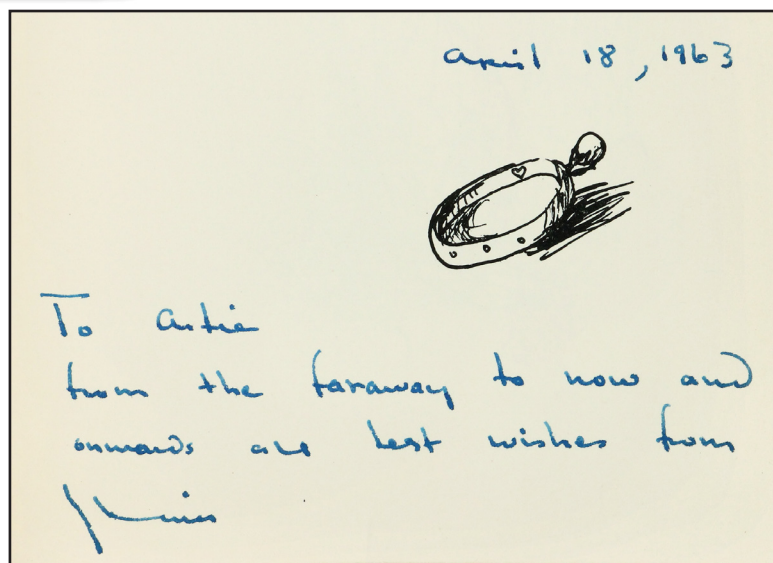 April 18, 1963
To Artie
from the faraway to now and
onwards all best wishes from